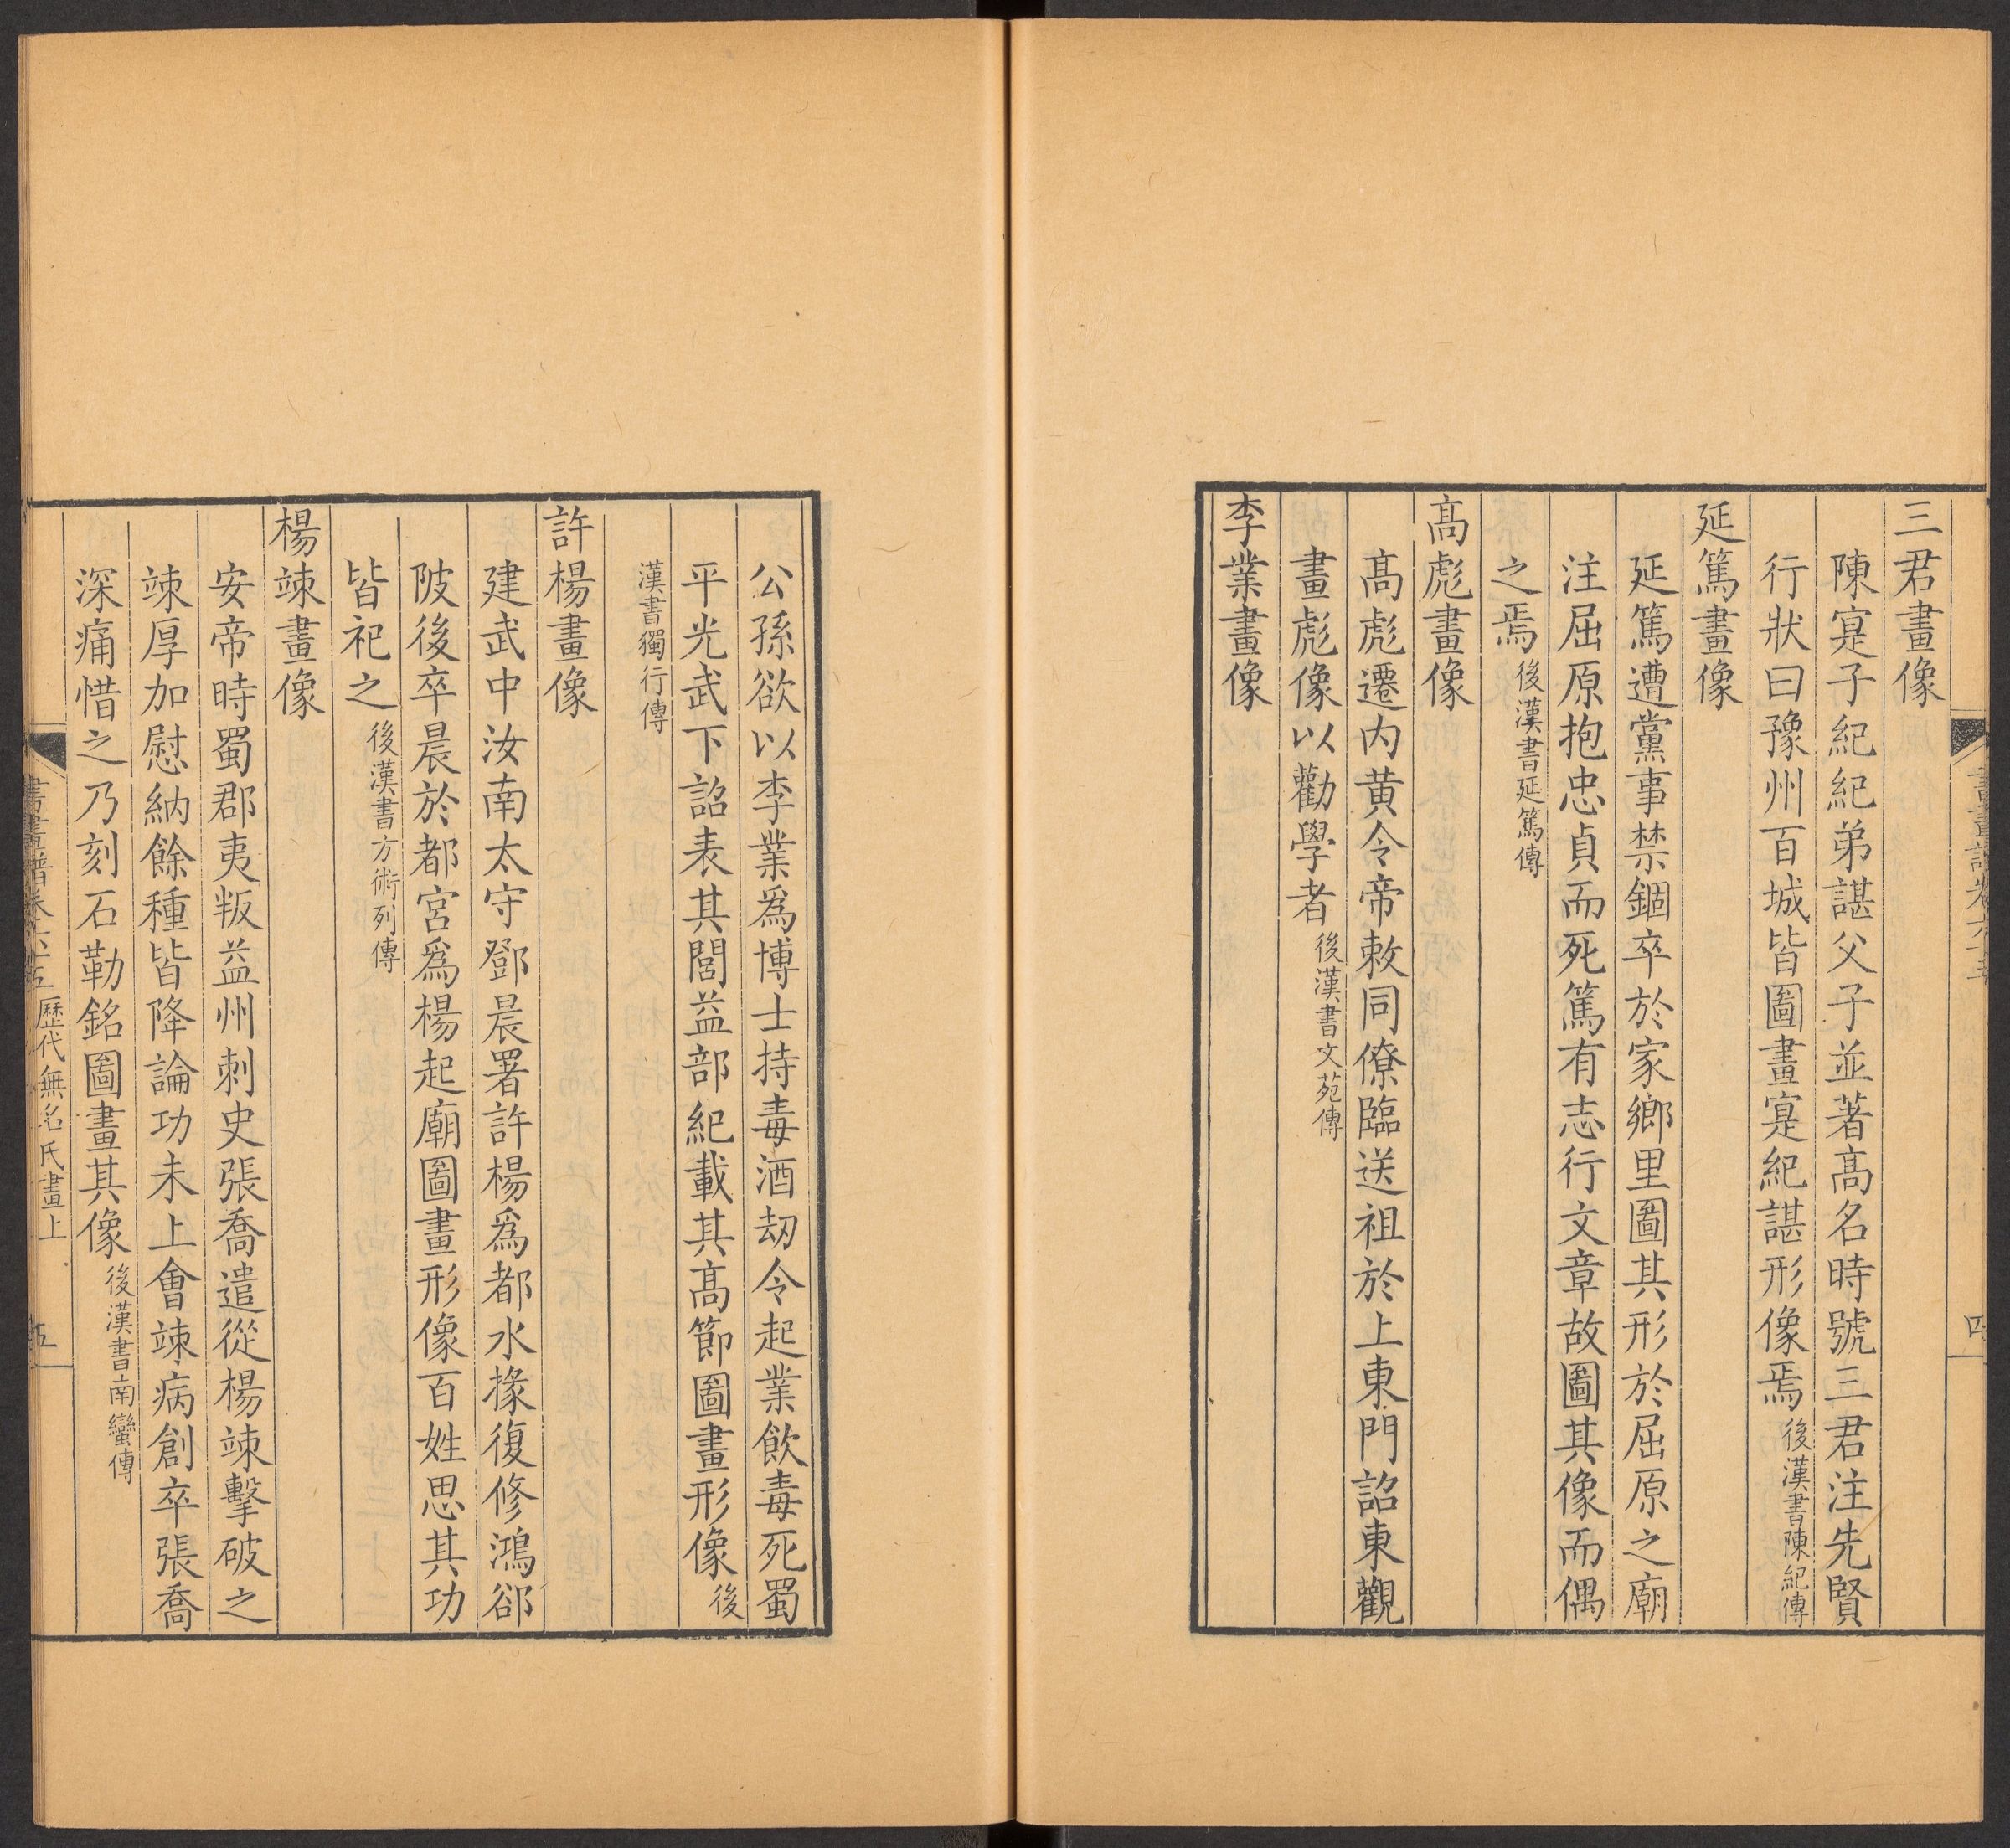 三君畫像
陳寔子紀紀弟諶父子並著髙名時號三君注先賢
行狀曰豫州百城皆圖畫寔紀諶形像焉後漢書陳紀傳
延篤畫像
延篤遭黨事禁錮卒於家鄉里圖其形於屈原之廟
注屈原抱忠貞而死篤有志行文章故圖其像而偶
之焉後漢書延篤傳
髙彪畫像
髙彪遷内黄令帝敕同僚臨送祖於上東門詔東觀
畫彪像以勸學者後漢書文苑傳
李業畫像
書畫譜卷六十五
四
公孫欲以李業爲博士持毒酒刼令起業飲毒死蜀
平光武下詔表其閭益部紀載其髙節圖畫形像後
漢書獨行傳
許楊畫像
建武中汝南太守鄧晨署許楊爲都水掾復修鴻郤
陂後卒晨於都宮爲楊起廟圖畫形像百姓思其功
皆祀之後漢書方術列傳
楊竦畫像
安帝時蜀郡夷叛益州刺史張喬遣從楊竦擊破之
竦厚加慰納餘種皆降論功未上會竦病創卒張喬
深痛惜之乃刻石勒銘圖畫其像後漢書南蠻傳
書畫譜卷六十五 歷代無名氏畫上
五